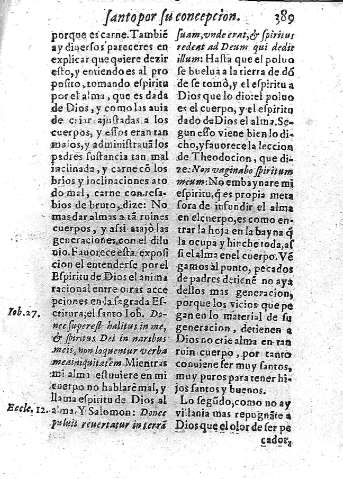 santo por su concepcion. 389
porque es carne. Tambiē
ay diversos pareceres en
explicar que quiere dezir
esto, y entiendo es al pro
posito, tomando espiritu
por el alma, que es dada
de Dios, y como las auia
de criar ajustadas a los
cuerpos, y essos eran tan
malos, y administrauā los
padres sustancia tan mal
inclinada, y carne cō los
brios y inclinaciones ato
do mal, carne con resa-
bios de bruto, dize: No
mas dar almas a tā ruines
cuerpos, y assi atajò las
generaciones con el dilu
uio. Fauorece esta exposi
cion el entenderse por el
Espiritu de Dios el anima
racional entre otras acce
pciones en la sagrada Es
critura; el santo Iob. Do-
Iob. 27.
nec superest halitus in me,
& spiritus Dei in naribus
meis, non loquentur verba
mea iniquitatem. Mientras
mi alma estuuiere en mi
cuerpo no hablarè mal, y
llama espiritu de Dios al
Eccle. 12.
alma. Y Salomon: Donec
puluis reuertatur in terrā
suam, unde erat, & spiritus
redeat ad Deum qui dedit
illum: Hasta que el poluo
se buelua a la tierra de dō
de se tomò, y el espiritu a
Dios que lo dio: el poluo
es el cuerpo, y el espiritu
dado de Dios el alma. Se-
gun esso viene bien lo di
cho, y fauorece la leccion
de Theodocion, que di-
ze: Non vaginabo spiritum
meum: No embaynare mi
espiritu, q̄ es propia meta
fora de infundir el alma
en el cuerpo, es como en-
trar la hoja en la bayna q̄
la ocupa y hinche toda, as
si el alma en el cuerpo. Vē
gamos al punto, pecados
de padres detienē no aya
dellos mas generacion,
porque los vicios que pe
gan en lo material de su
generacion, detienen a
Dios no crie alma en tan
ruin cuerpo, por tanto
conuiene ser muy santos,
muy puros para tener hi-
jos santos y buenos.
Lo segūdo, como no ay
villania mas repugnāte a
Dios que el olor de ser pe
cador,